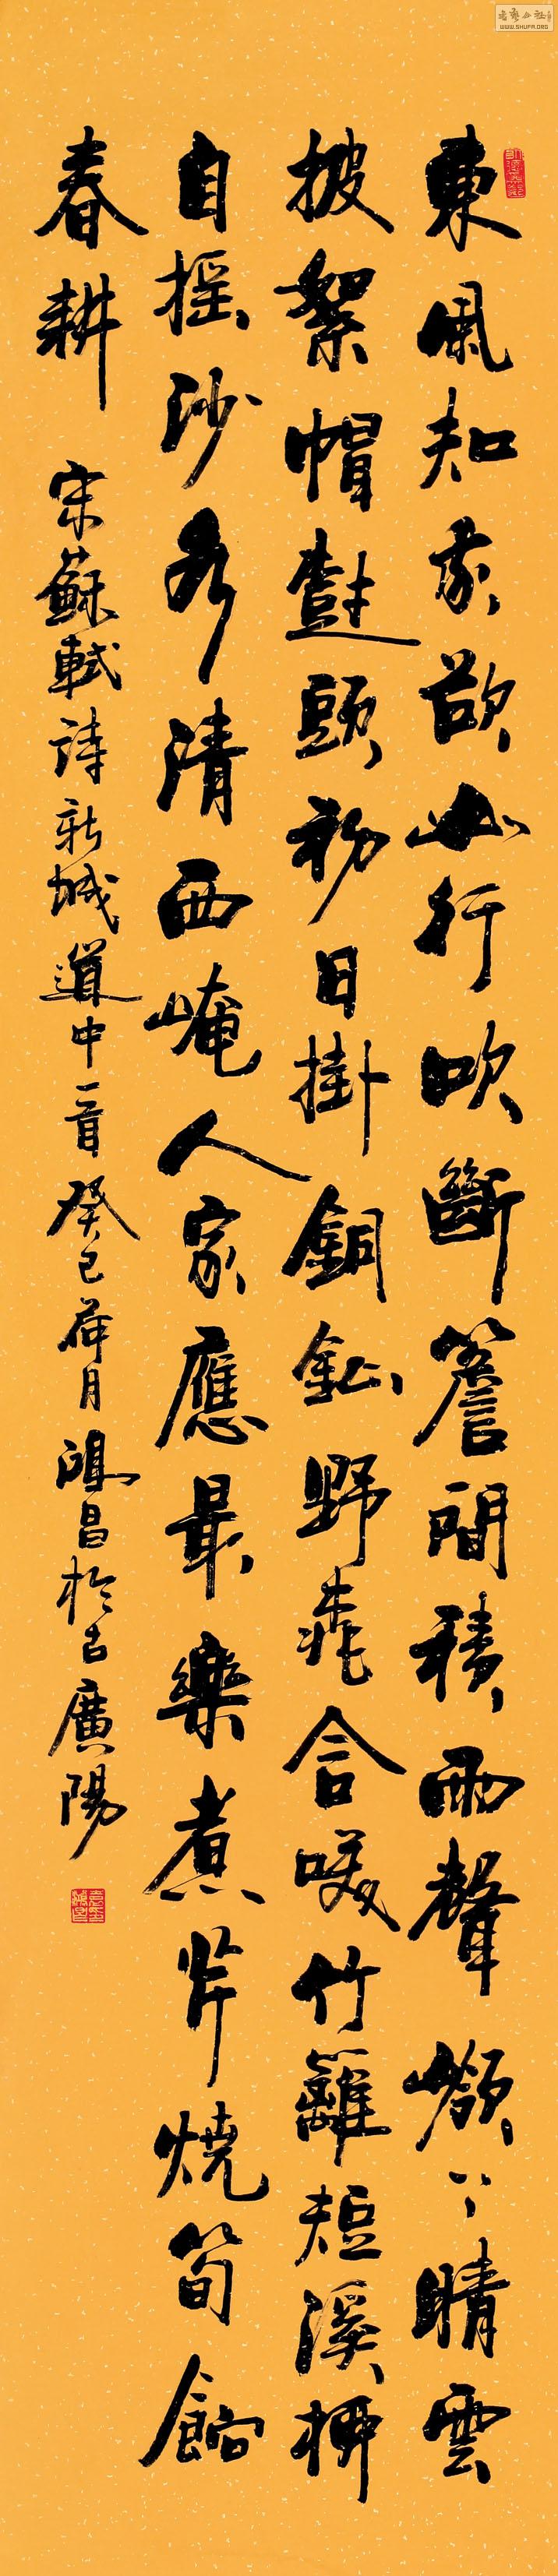 東風知我欲山行吹斷簷間積雨聲嶺上晴雲
披絮帽樹頭初日掛銅鉦野桃含咲竹籬短溪柳
自搖沙水清西崦人家應最樂煮芹燒筍餉
春耕 宋蘇軾詩新城道中一首癸巳荷月鴻昌於古廣陽
WWW.SHUFA.ORG